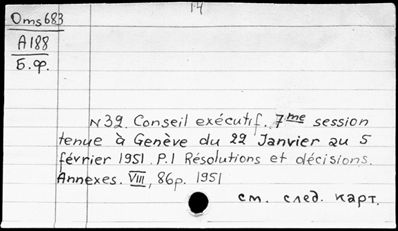 14
Oms683
A188
Б.ф.
N32. Conseil exécutif. 7me session
tenue à Genève du 22 Janvier au 5
février 1951. P.1 Résolutions et décisions.
Annexes. VIII, 86p. 1951
см. след. карт.